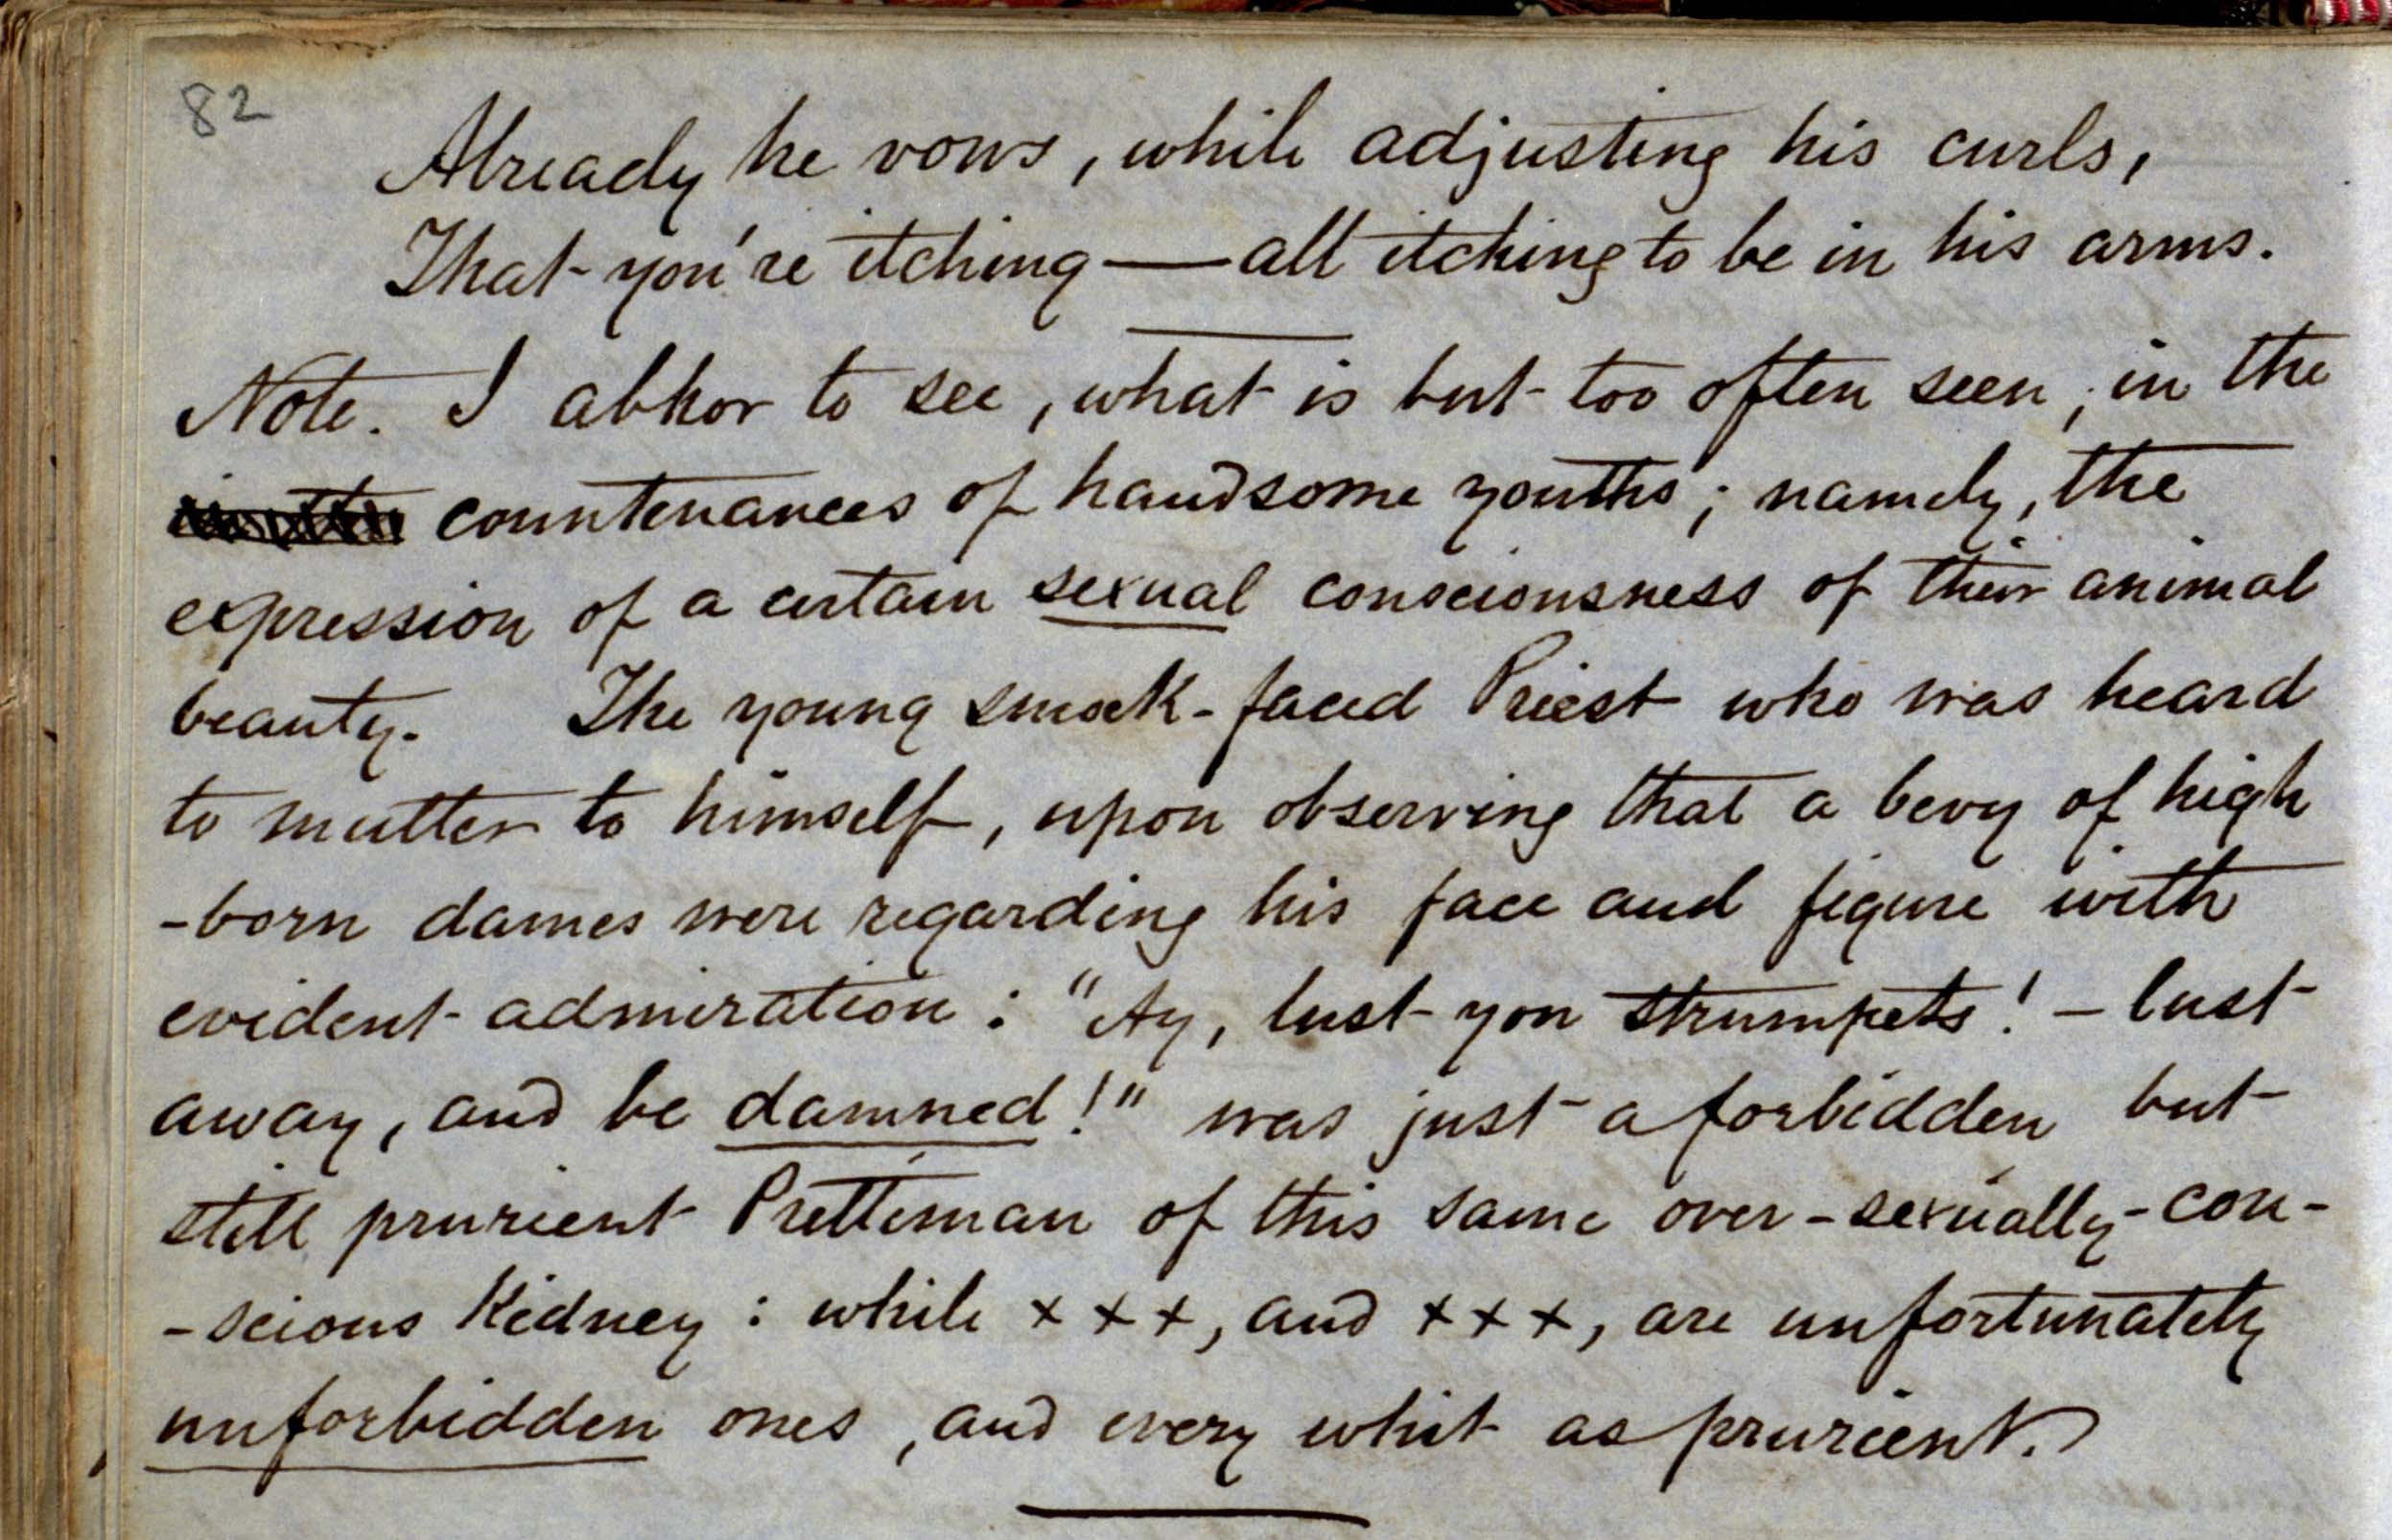 82
Already he vows, while adjusting his curls,
That you're itching — all itching to be in his arms.
Note. I abhor to see, what is but too often seen, in the
countenances of handsome youths; namely, the
expression of a certain sexual consciousness of their animal
beauty. The young smock-faced Priest who was heard
to mutter to himself, upon observing that a bevy of high
-born dames were regarding his face and figure with
evident admiration: "Ay, lust you strumpets! – lust
away, and be damned!" was just a forbidden but
still prurient Prettiman of this same over-sexually-con-
-scious Kidney: while + + +, and + + +, are unfortunately
unforbidden ones, and every whit as prurient.